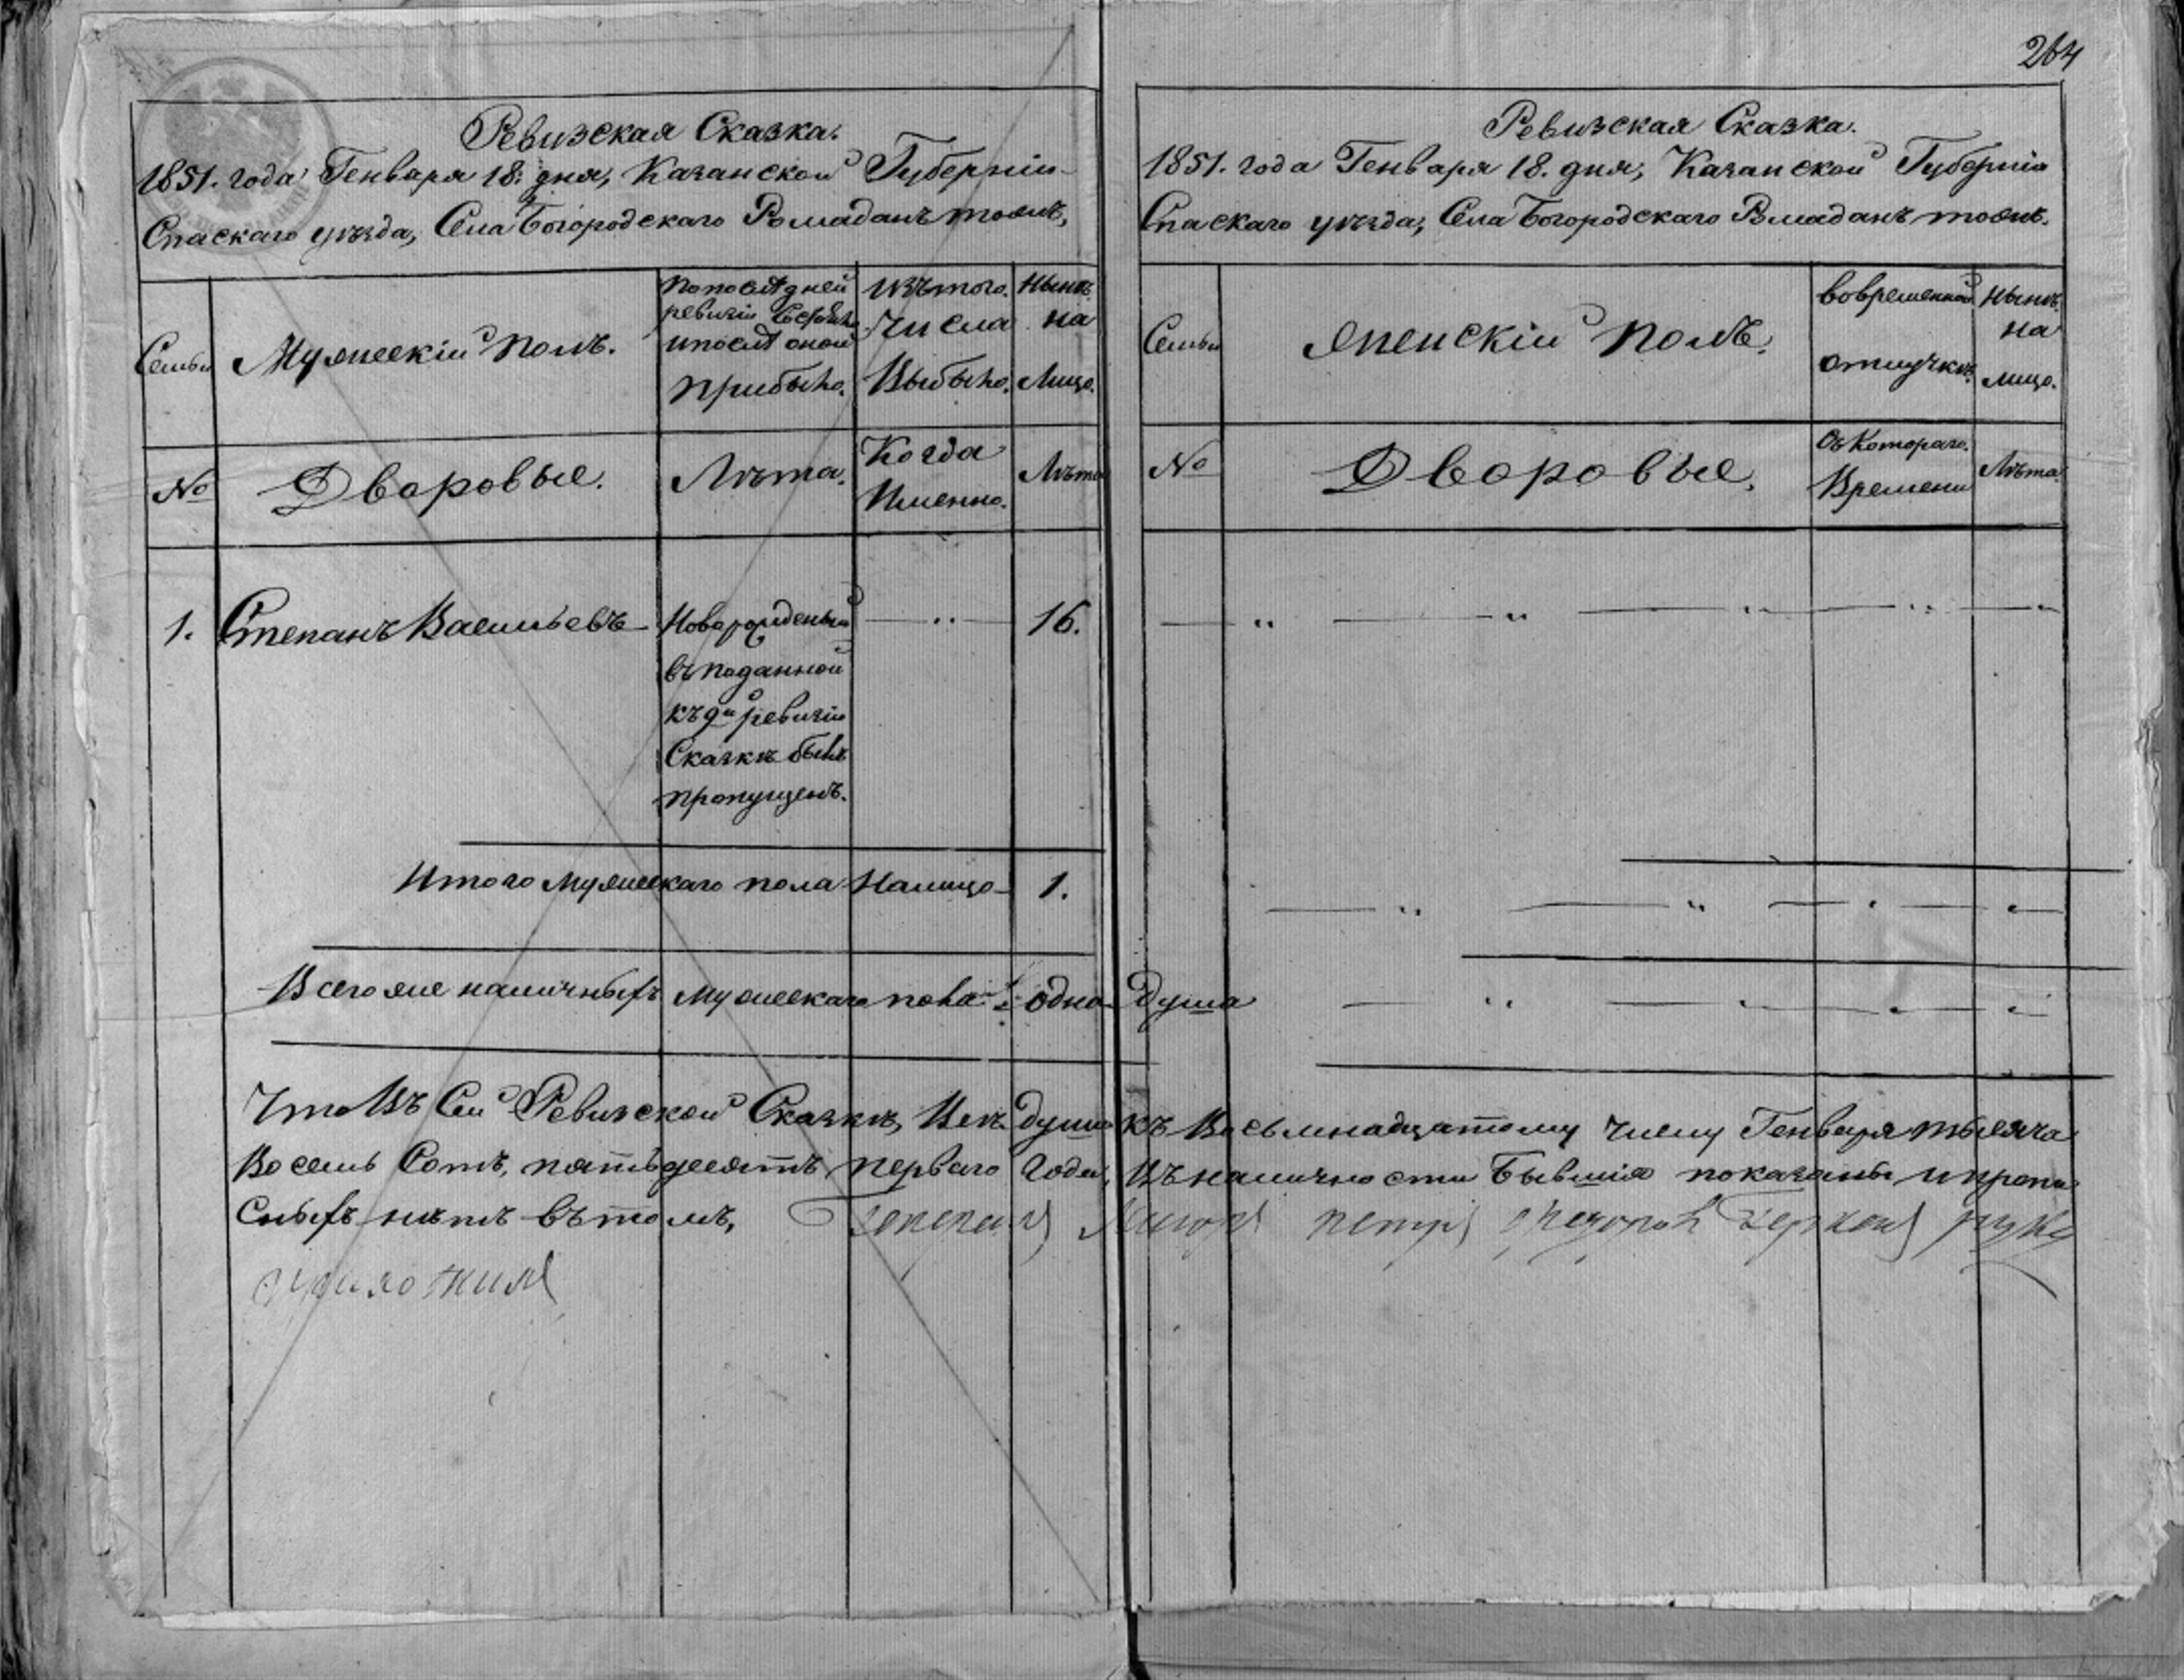 264
Ревизская Сказка.
1851. года Генваря 18. дня, Казанской Губерніи
Спаскаго уѣзда, Села Богородскаго Рамаданъ тожъ,
Семьи
Мужескій Полъ.
По последней
ревизіи
и после оной
прибыло.
Изъ того
Числа
Выбыло.
Нынѣ
на
Лицо.
№
Дворовые.
Лѣта.
Когда
Именно.
Лѣта
1.
Степанъ Васильевъ
Новорожденный
въ поданной
къ 9й ревизіи
Сказкѣ былъ
пропущенъ.
16.
Итого мужескаго пола Налицо 1.
Всего же наличныхъ мужескаго пола одна душа
Ревизская Сказка.
1851. года Генваря 18. дня, Казанской Губерніи
Спаскаго уѣзда, Села Богородскаго Рамаданъ тожъ.
Семьи
Женскій Полъ.
во временной
отлучкѣ.
Нынѣ
на
лицо.
№
Дворовые.
Съ Котораго.
Времени
Лѣта.
Что Въ Сей Ревизской Сказкѣ, Все души къ Восьмнадцатому Числу Генваря тысяча
Восемь Сотъ, пятьдесятъ перваго Года, Въ наличности Бывшія показаны и пропи
сныхъ нѣтъ въ томъ, Генералъ Маіоръ Петръ руку
приложилъ